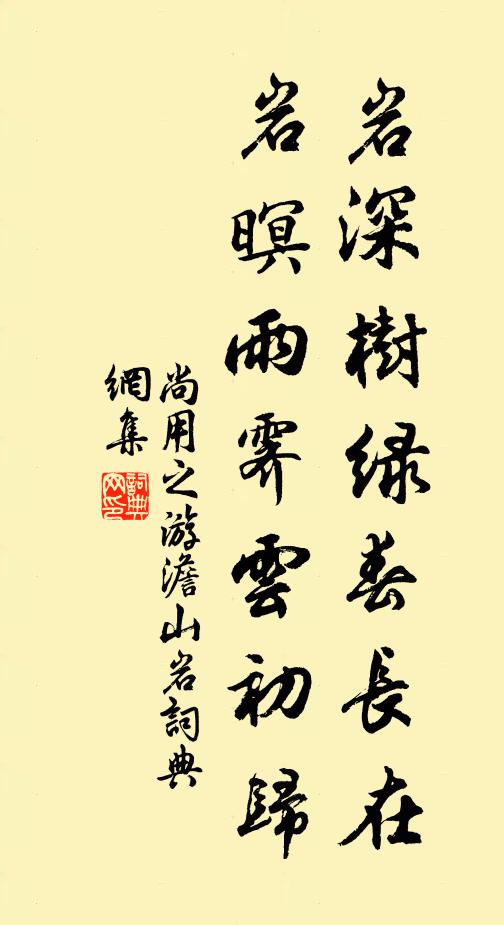 岩深樹绿春長在
岩暝雨霽雲初歸
尚用之游澹山岩詞典
網集
詞典
网印